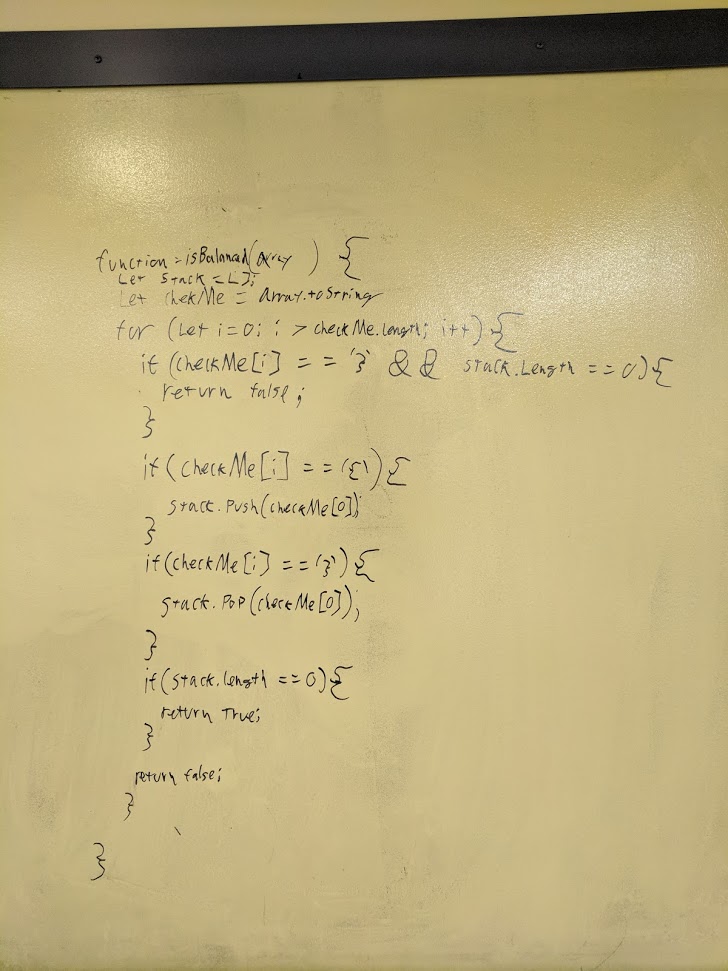 function = isBalanced(array) {
Let stack = [];
Let chekMe = Array.toString
for (Let i=0; i > checkMe.length; i++){
if (checkMe[i] == '}' && stack.Length == 0){
return false;
}
if(checkMe[i] == '{'){
stack.Push(checkMe[0]);
}
if(checkMe[i] == '}'){
stack.PoP(checkMe[0]);
}
if(stack.length == 0){
return True;
}
return false;
}
}